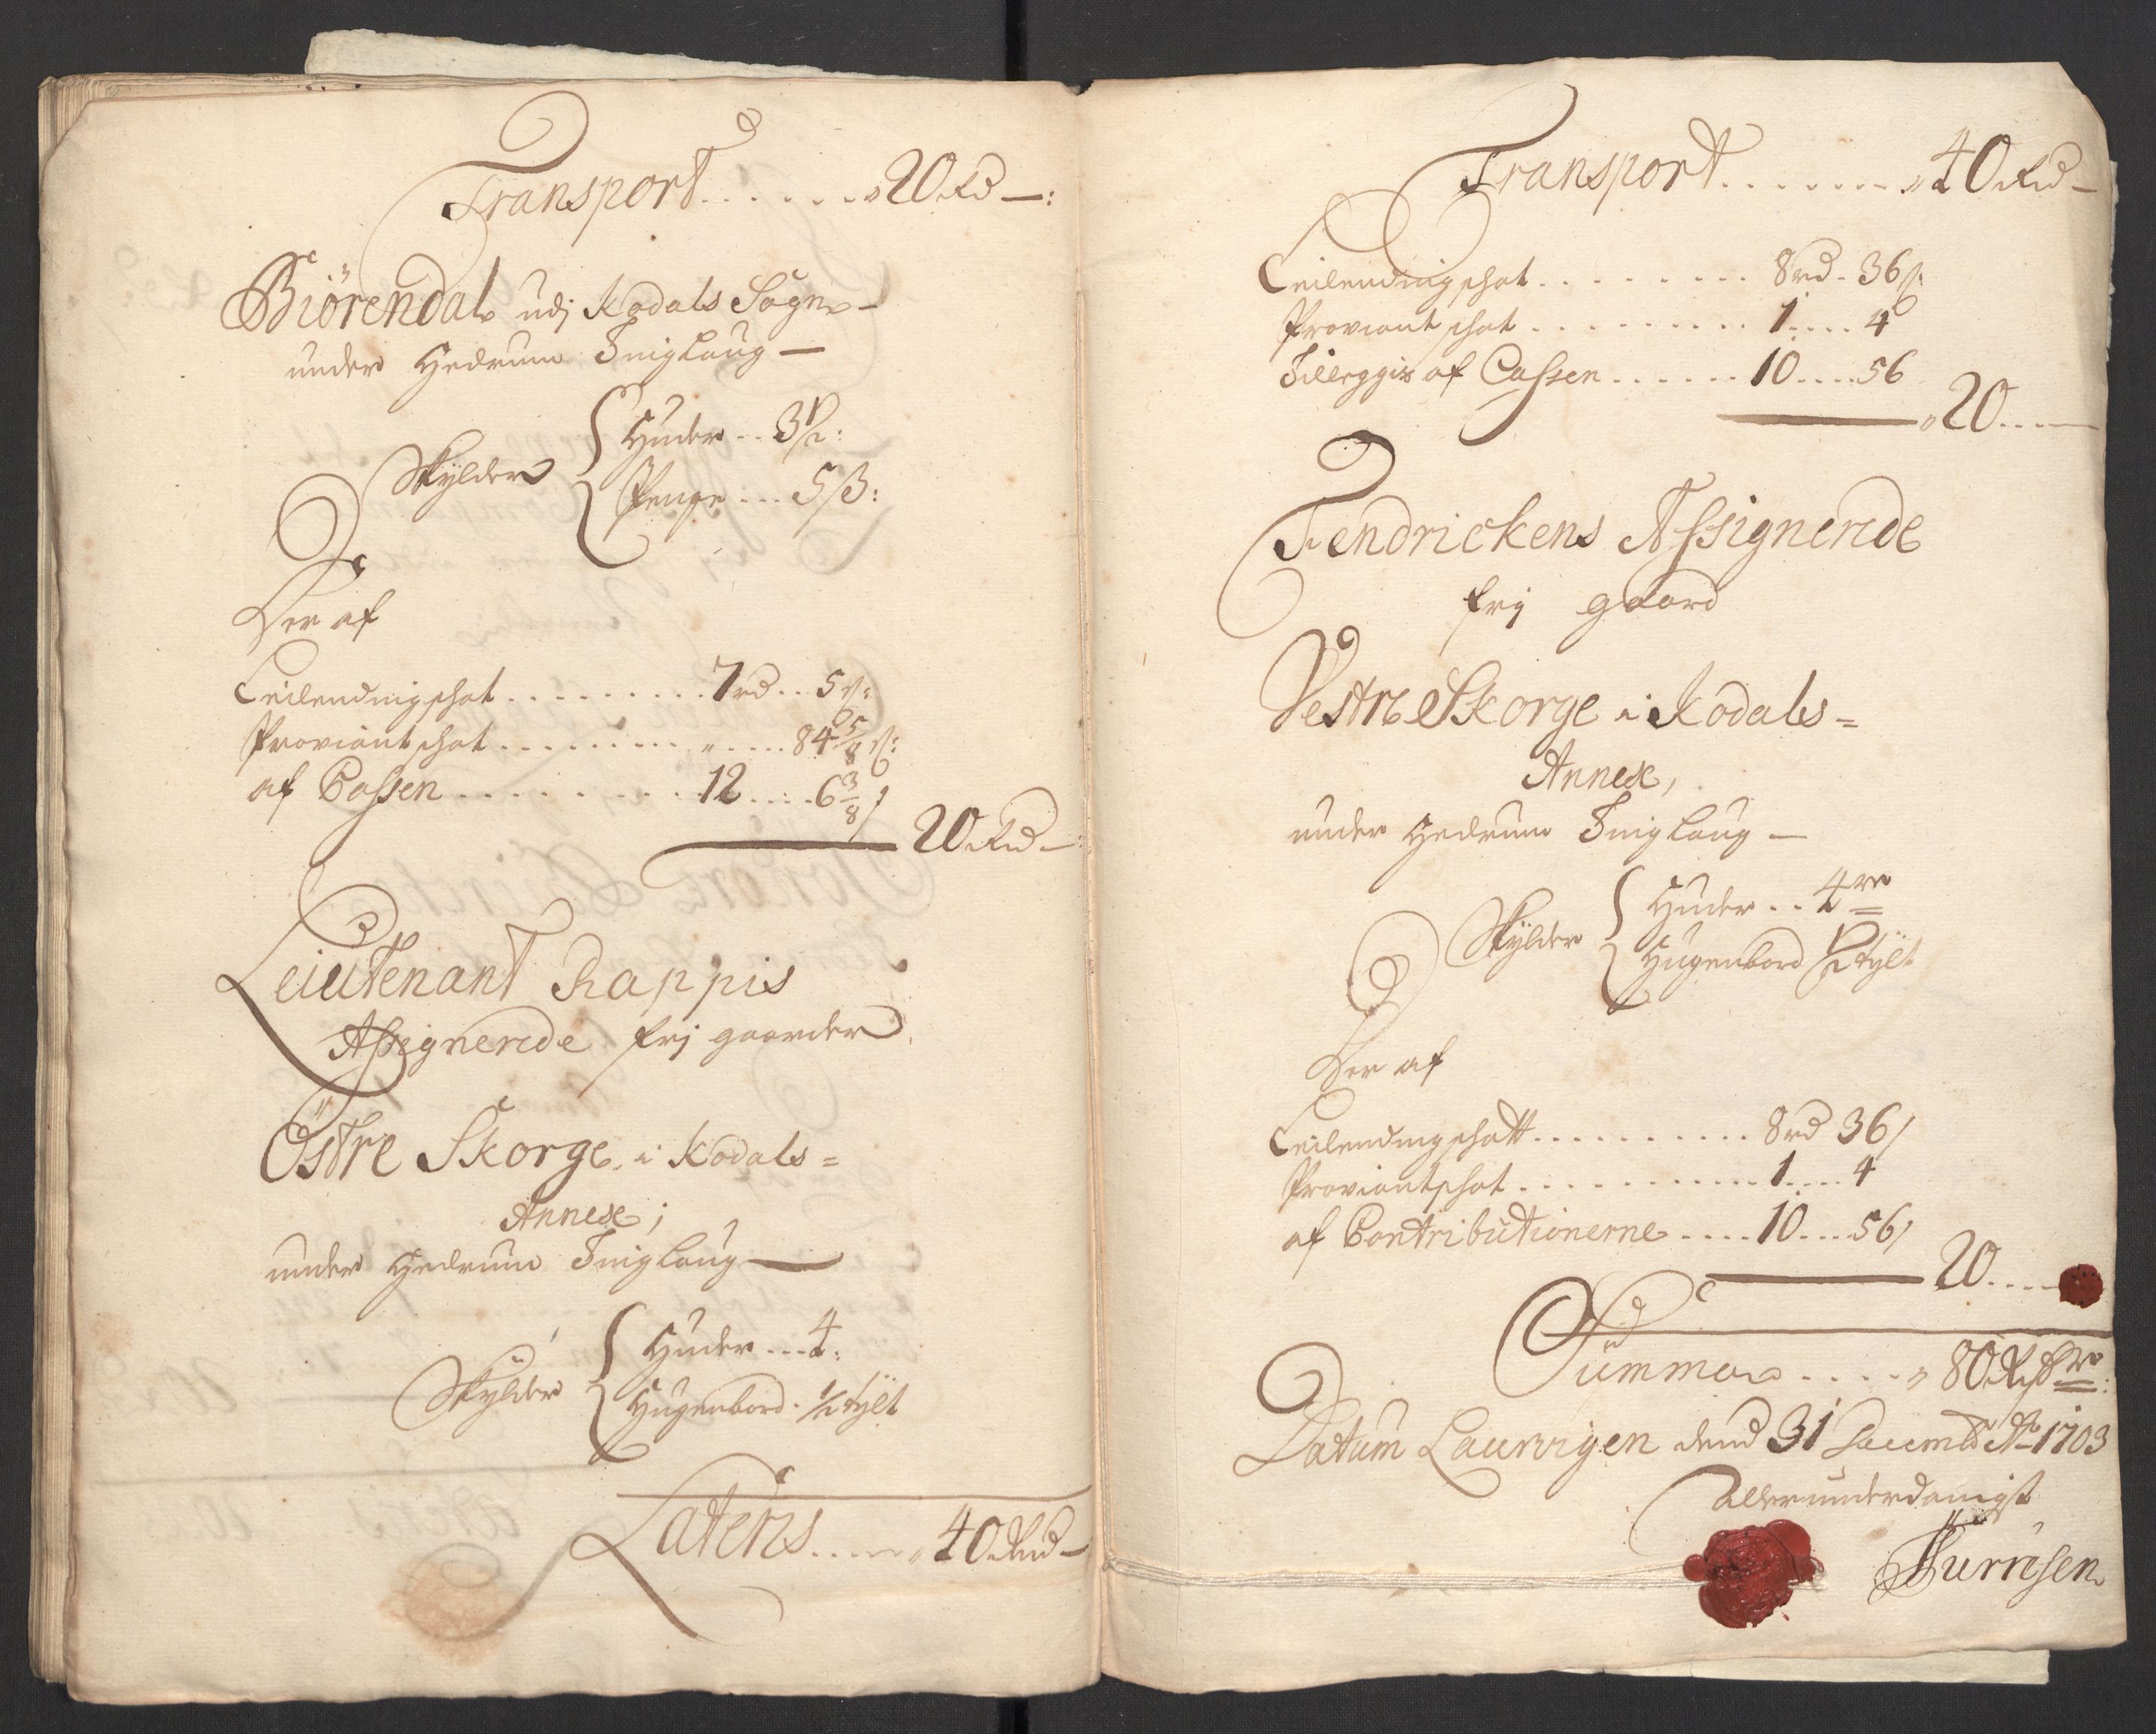 Transport . . . . . . „ 20 Rd —:
Biörendal udj Kodals Sogn —
under Hedrum Tinglaug —
Skylder
Huder . . 3½:
Penge . . . 5 ß:
Der af
Leilendingschat . . . . . . . . . 7 rd . . 5 ß:
Proviantschat . . . . . . . . . „ . . . . 84 5/8 ß:
af Cassen . . . . . . . . . 12 . . . . 6 3/8 ß
20 Rd —:
Leiutenant Rappis
Assignerede frj gaarder
Östre Skorge i Kodals =
Annexe;
under Hedrum Tinglaug —
Skylder
Huder . . . 4:
Hugenbord . ½ tylt
Lateris . . . . „ 40 Rd —
Transport . . . . . . . „ 40 Rd —
Leilendingschat . . . . . . . . . 8 rd . 36 ß:
Proviantschat . . . . . . . . . 1 . . . . 4
Tilleggis af Cassen . . . . . . 10 . . . . 56
„ 20 . . . —
Fendrickens Assignerede
frij gaard
Vestre Skorge i Kodals =
Annex,
under Hedrum Tinglaug —
Skylder
Huder . . 4re
Hugenbord ½ tylt
Der af
Leilendingschatt . . . . . . . . . . 8 rd 36 ß
Proviantschat . . . . . . . . . . . 1 . . . . 4
af Contributionerne . . . . 10 . . . 56 ß
20 . . . .
Summa . . . . „ 80 Rdr:
Datum Laurvigen dend 31 Decembr Ao 1703
Allerunderdanigst